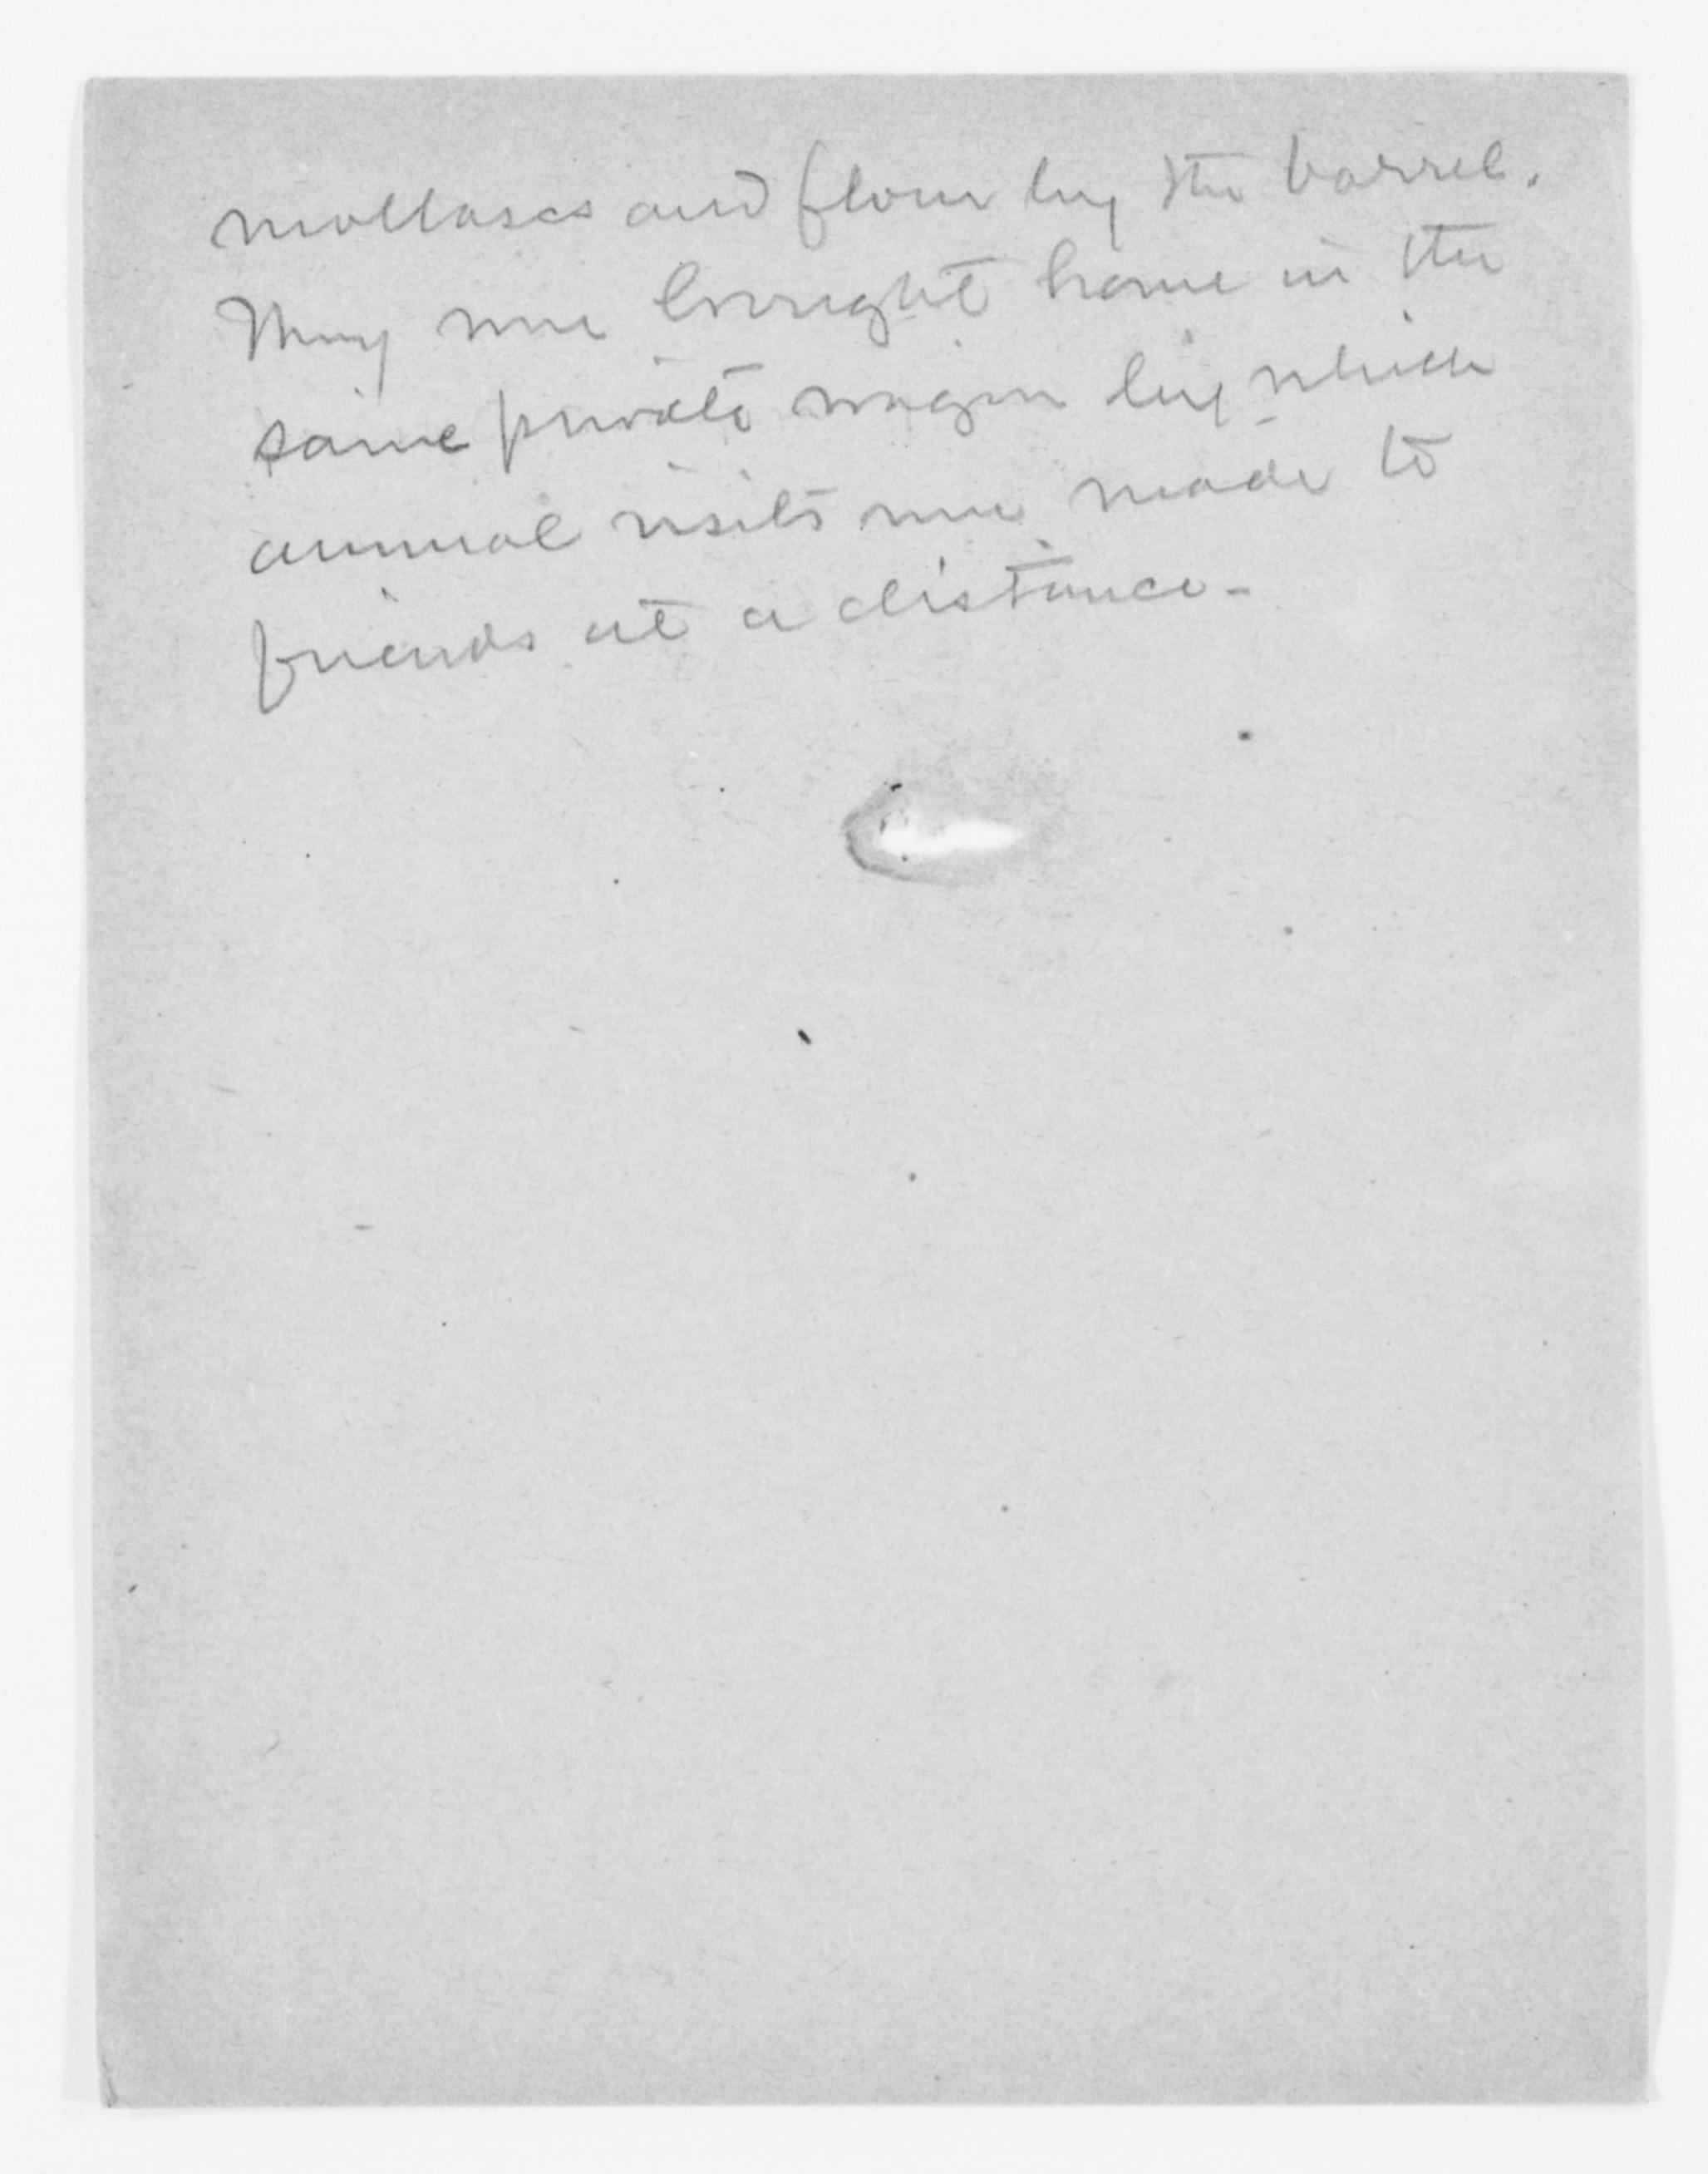 mollases and flour by the barrel.
They were brought home in the
same private wagon by which
annual visits were made to
friends at a distance-